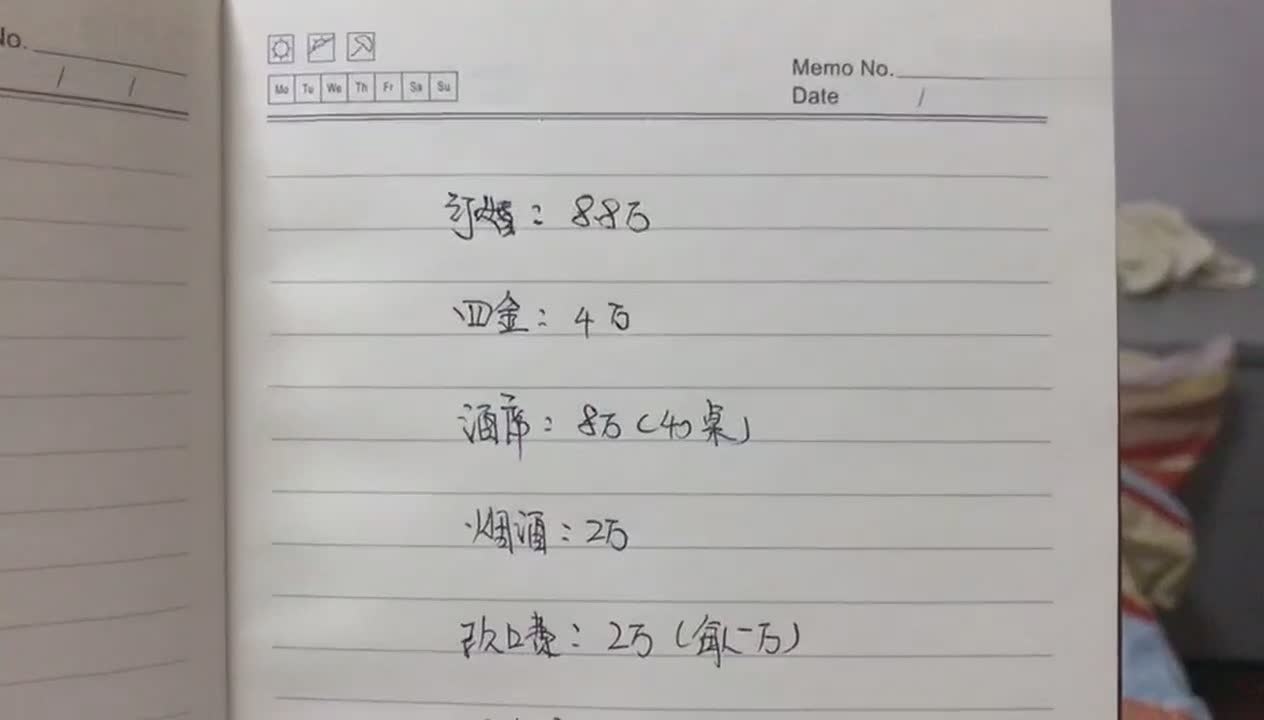 No.
/ /
Mo Tu We Th Fr Sa Su
Memo No.
Date /
订婚：8.8万
四金：4万
酒席：8万（40桌）
烟酒：2万
改口费：2万（每人一万）